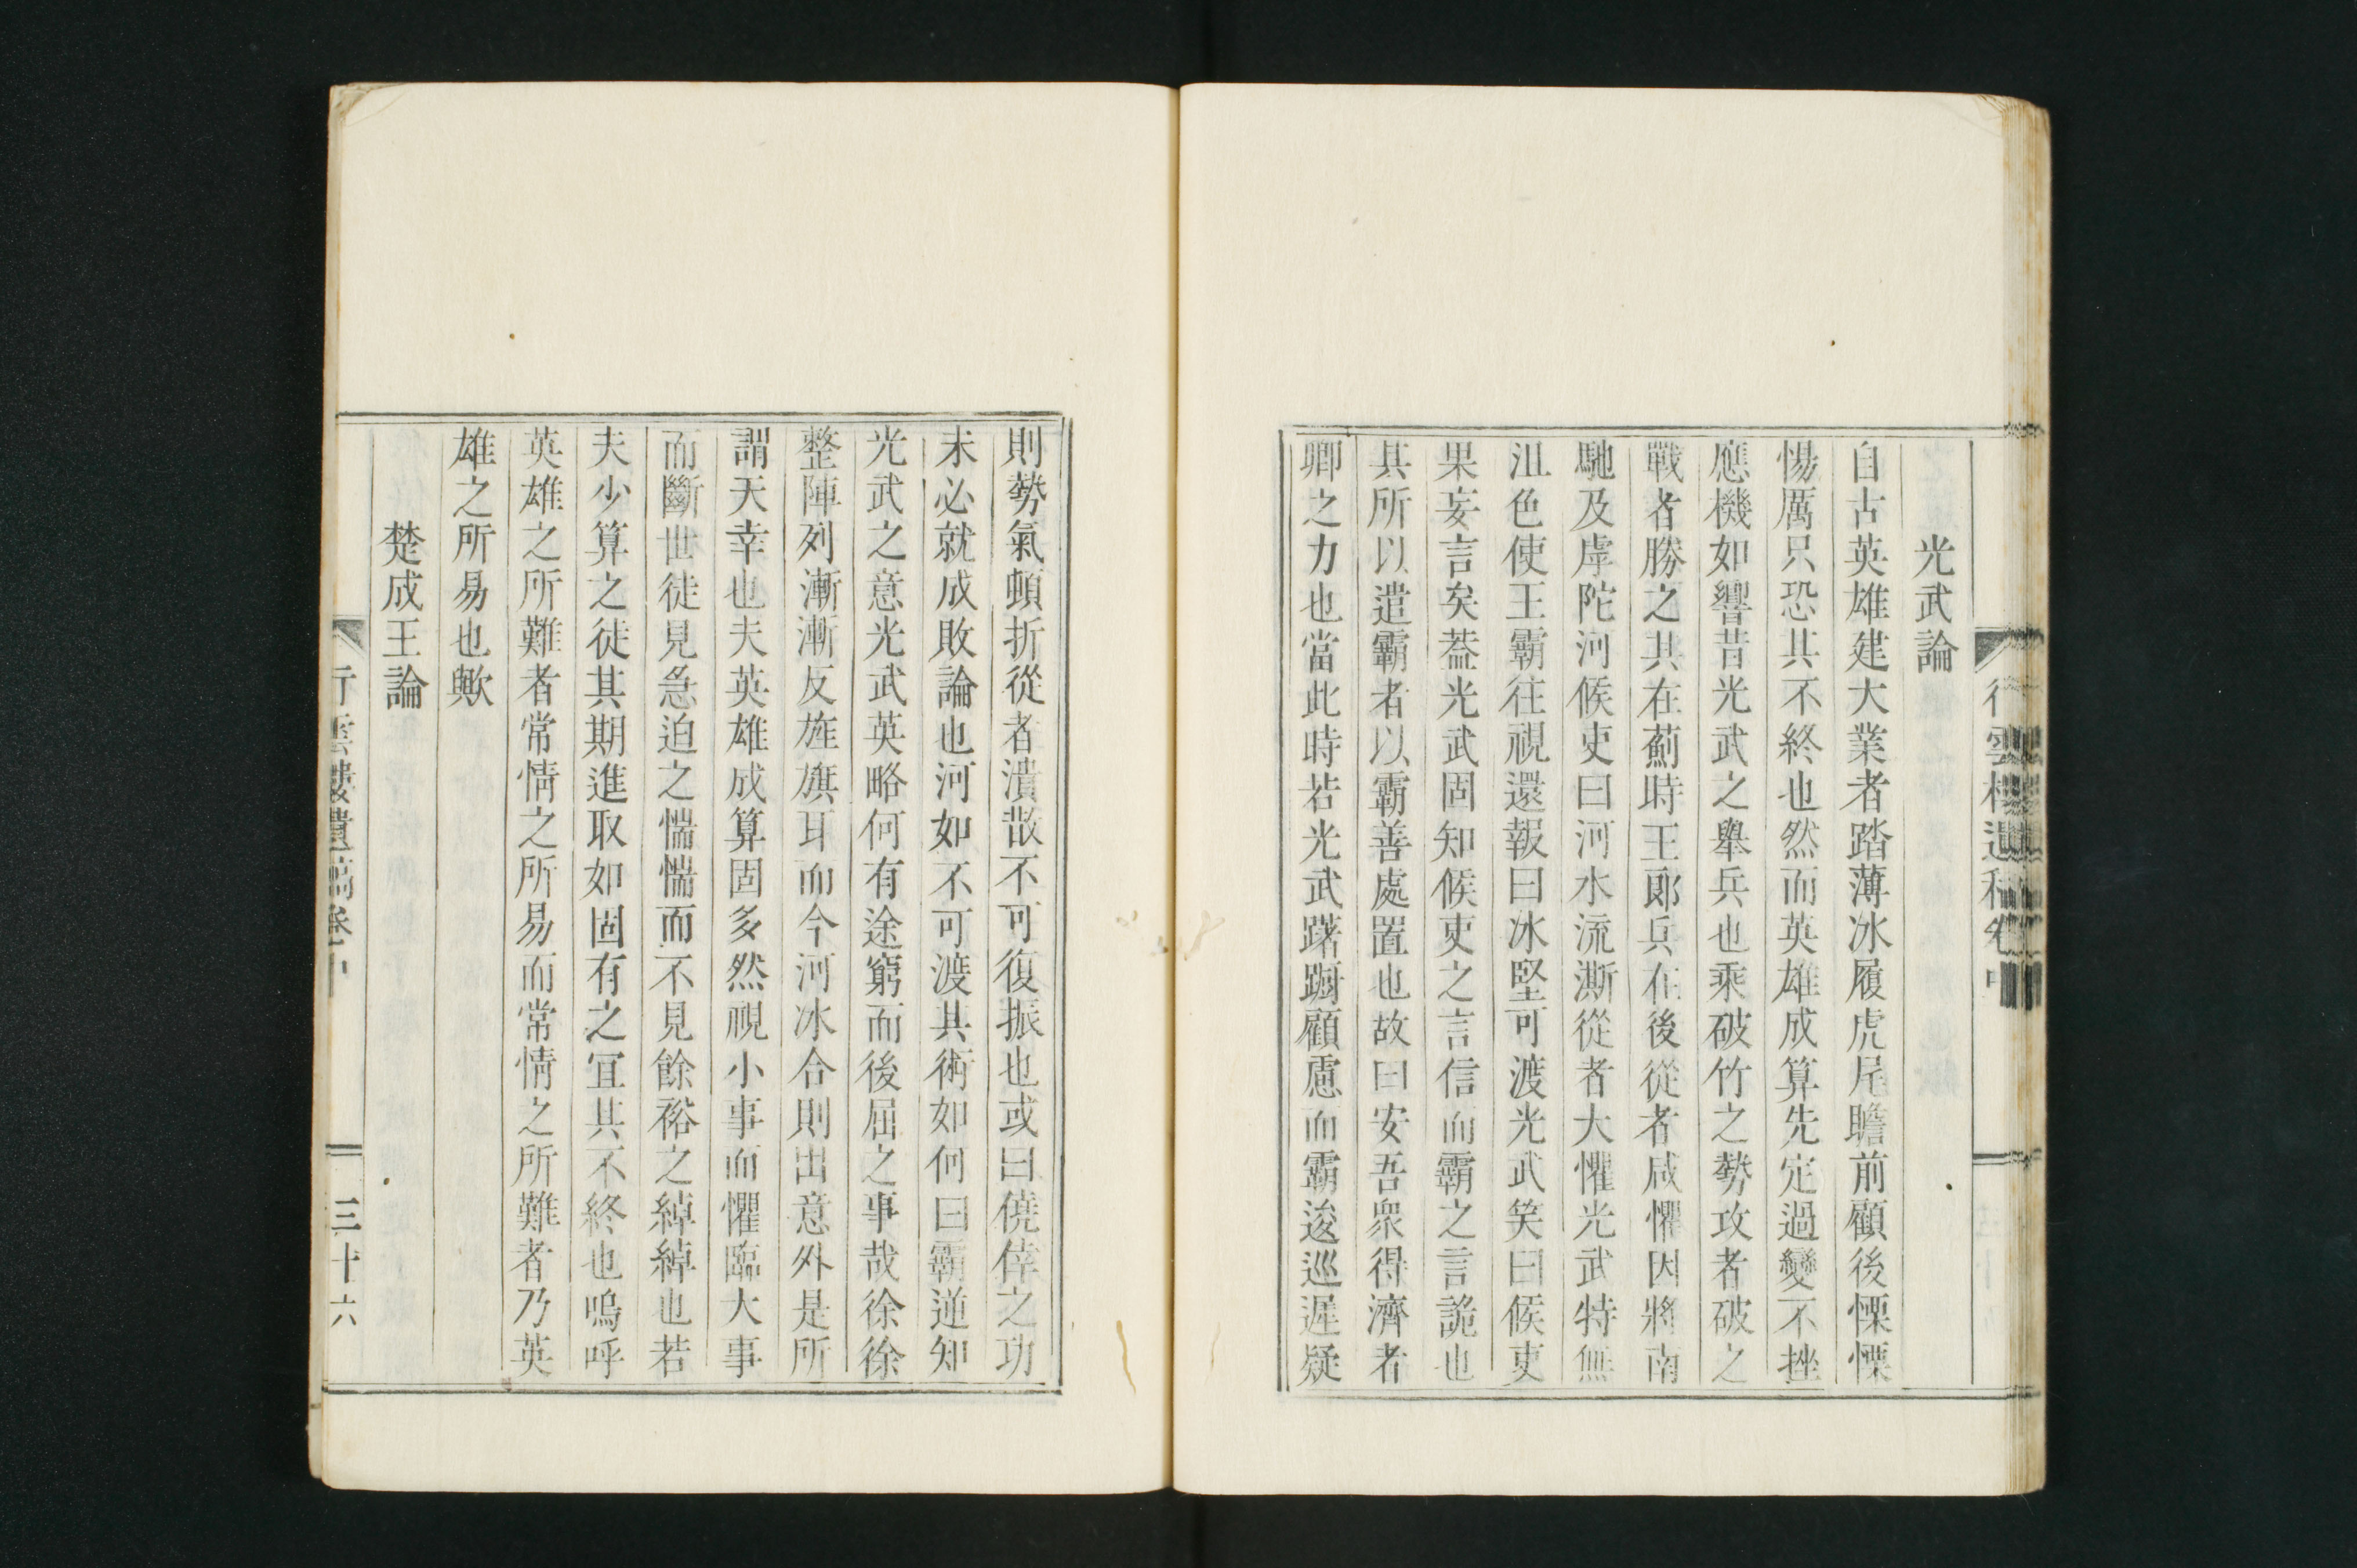 光武論
自古英雄建大業者踏薄冰履虎尾瞻前顧後慄慄
惕厲只恐其不終也然而英雄成算先定過變不挫
應機如響昔光武之舉兵也乘破竹之勢攻者破之
戰者勝之其在薊時王郞兵在後從者咸懼因將南
馳及虖陀河候吏曰河水流澌從者大懼光武特無
沮色使王霸往視還報曰冰堅可渡光武笑曰候吏
果妄言矣葢光武固知候吏之言信而霸之言詭也
其所以遣霸者以霸善處置也故曰安吾衆得濟者
卿之力也當此時若光武躇躕顧慮而霸逡巡遲疑
則勢氣頓折從者潰散不可復振也或曰僥倖之功
未必就成敗論也河如不可渡其術如何曰霸逆知
光武之意光武英略何有途窮而後屈之事哉徐徐
整陣列漸漸反旌旗耳而今河冰合則出意外是所
謂天幸也夫英雄成算固多然視小事而懼臨大事
而斷世徒見急迫之惴惴而不見餘裕之綽綽也若
夫少算之徒其期進取如固有之宜其不終也嗚呼
英雄之所難者常情之所易而常情之所難者乃英
雄之所易也歟
楚成王論
行雲樓遺稿卷中
三十六